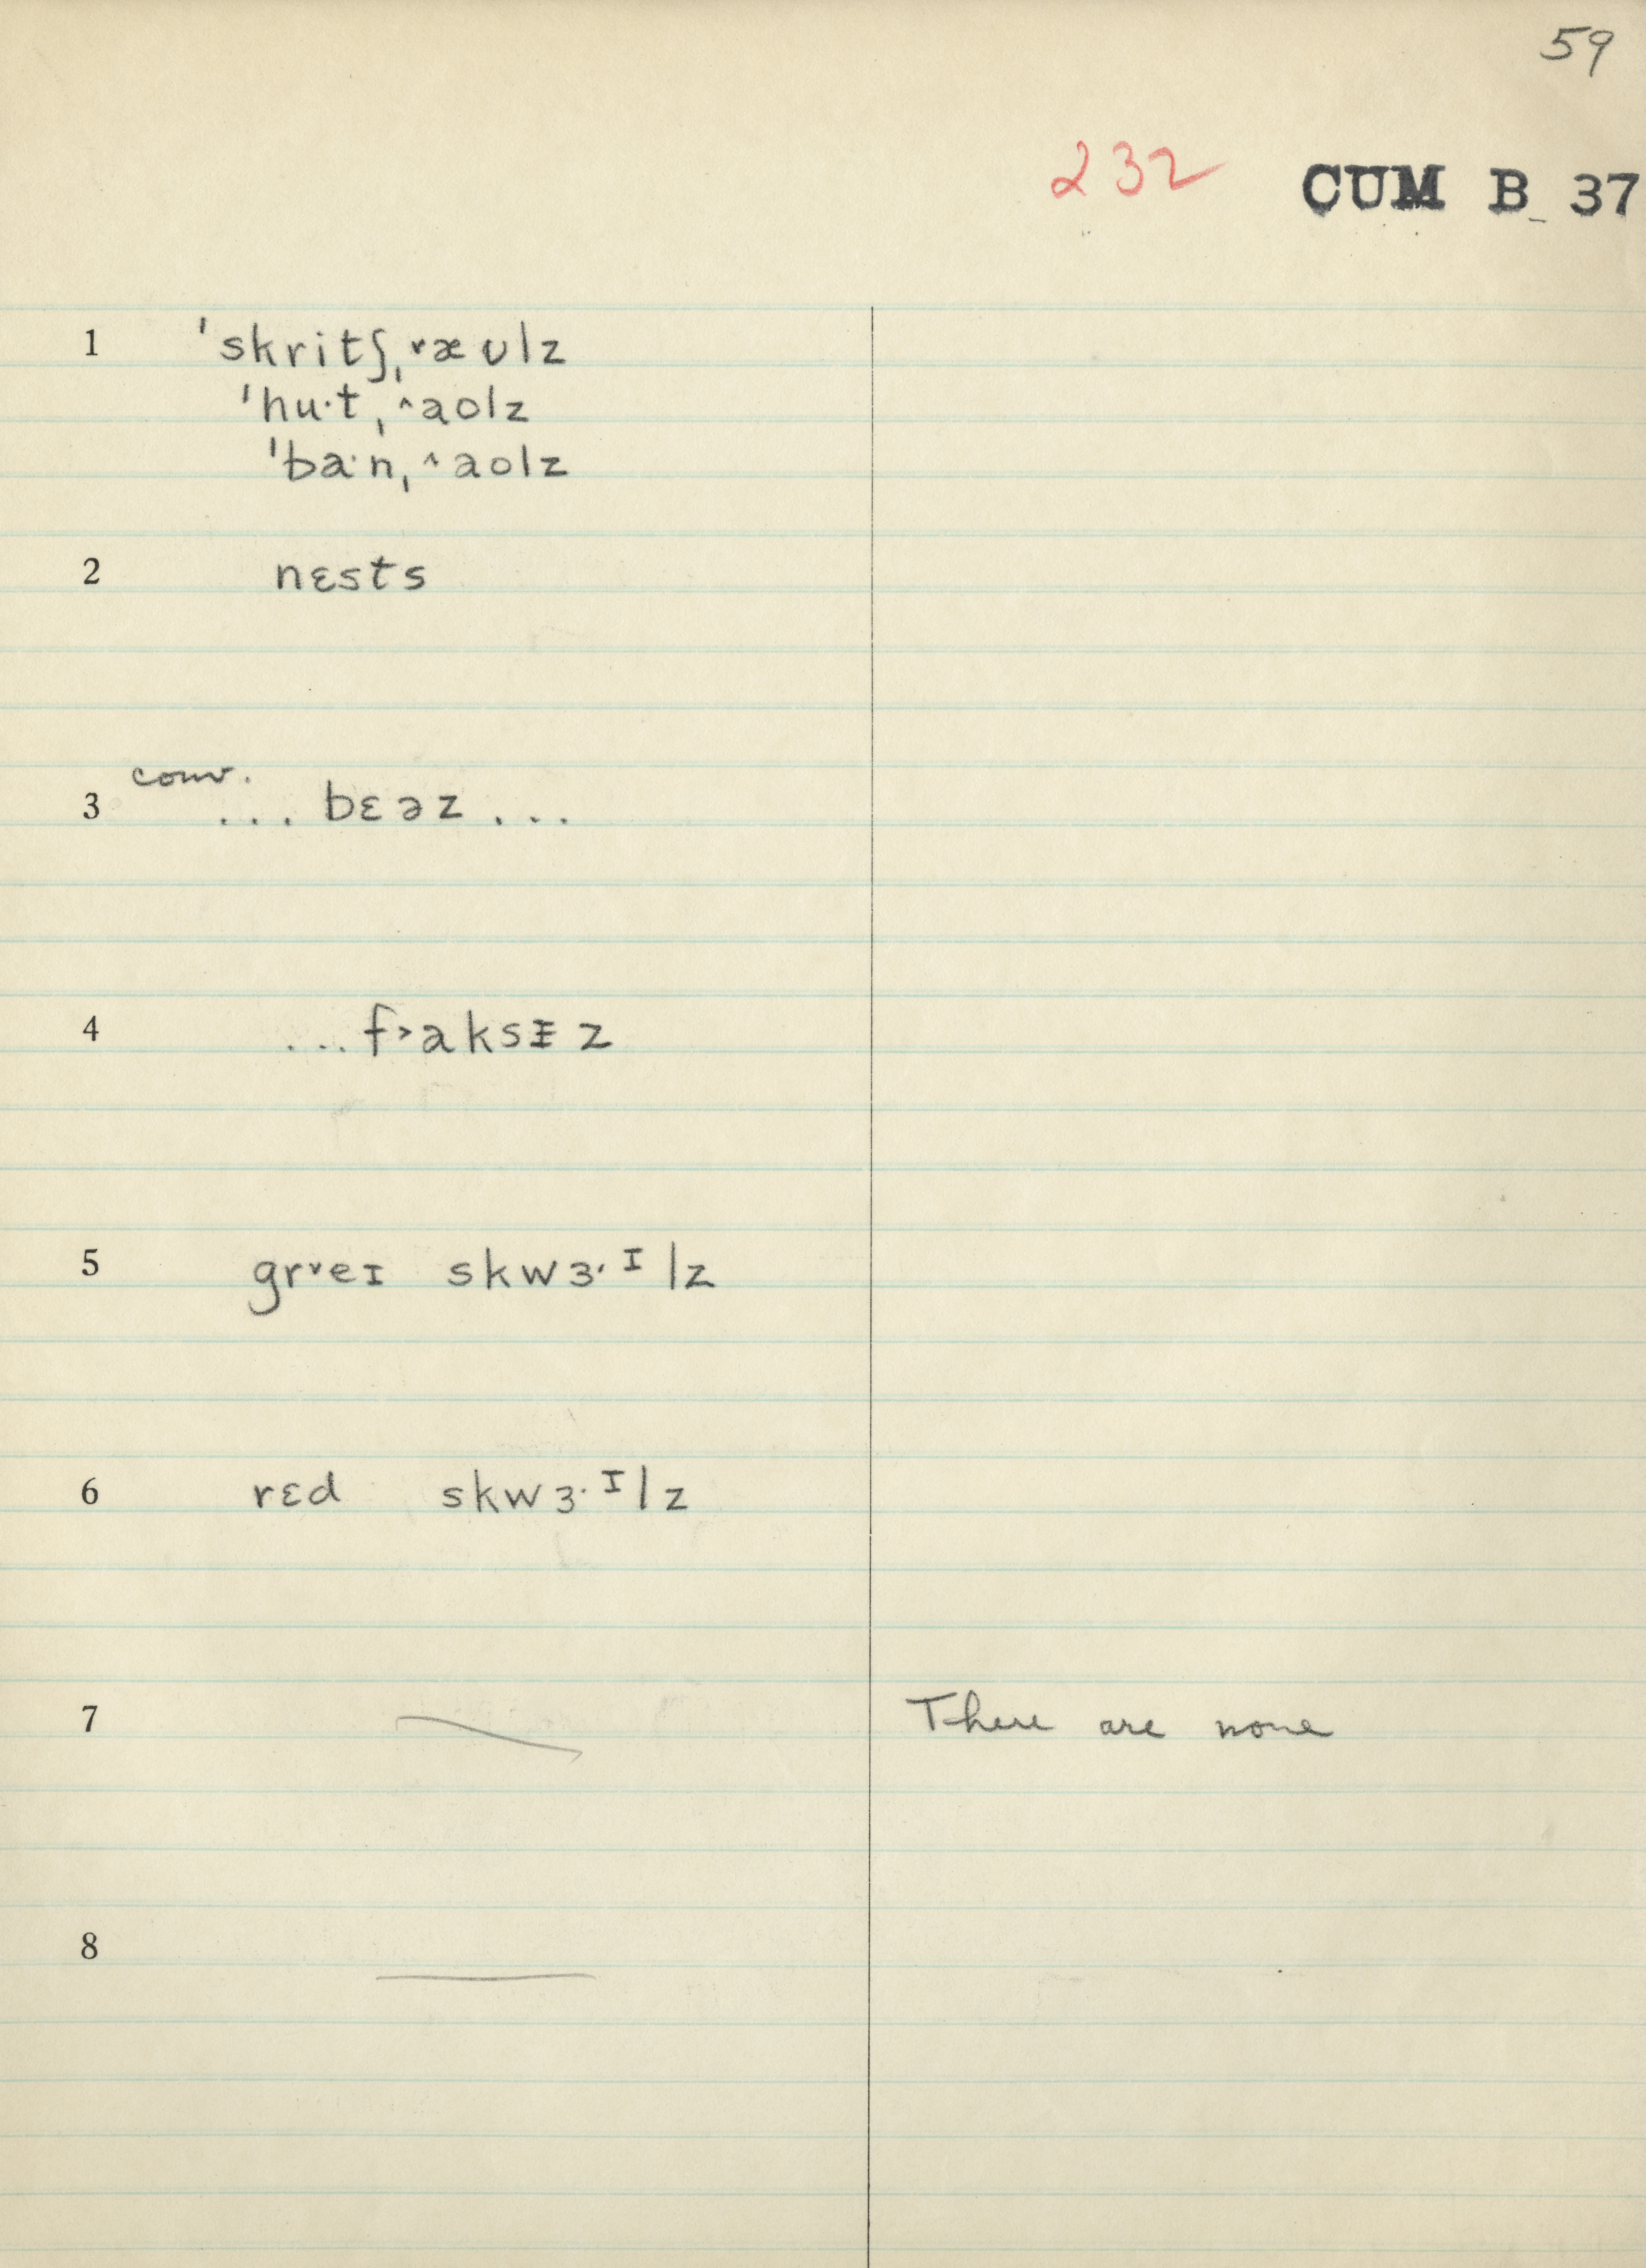 59
232 CUM B 37
1 ˈskritʃˌ˅æʊlz
ˈhu·tˌ˄aolz
ˈba·nˌ˄aolz
2 nɛsts
3 conv. ... bɛəz ...
4 ... f˃aksᵻz
5 gr˅eɪ skwɜ·ᴵlz
6 rɛd skwɜ·ᴵlz
7 There are none
8